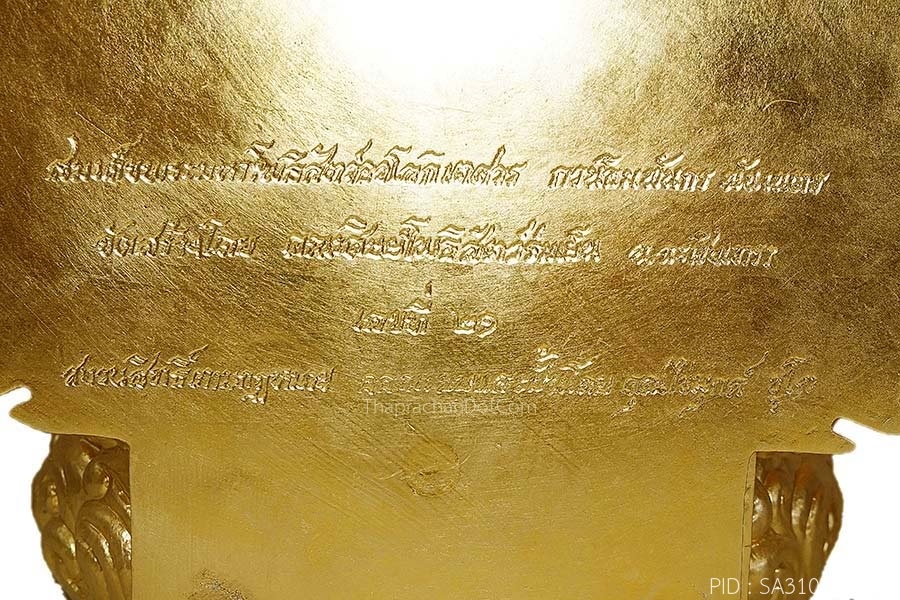 สมเด็จพระมหาโพธิสัตว์อวโลกิเตศวร กวนอิม พันกร พันเนตร
จัดสร้างโดย โพธิสัตว์ จ.ฉะเชิงเทรา
เลขที่ ๒๑
สงวนสิทธิ์ตามกฎหมาย ออกแบบและปั้นโดย
ThaprachanDotCom
PID : SA310